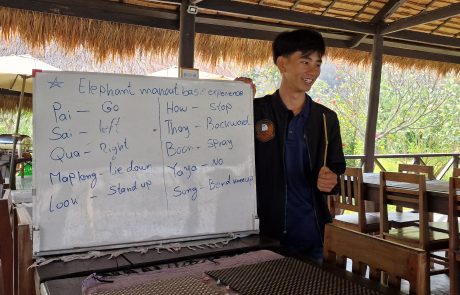 Elephant mahout basic experience
Pai - Go
Sai - left
Qua - Right
Map long - Lie down
Look - Stand up
How - Stop
Thoy - Backward
Boon - Spray
Yaya - No
Song - Bend knee up